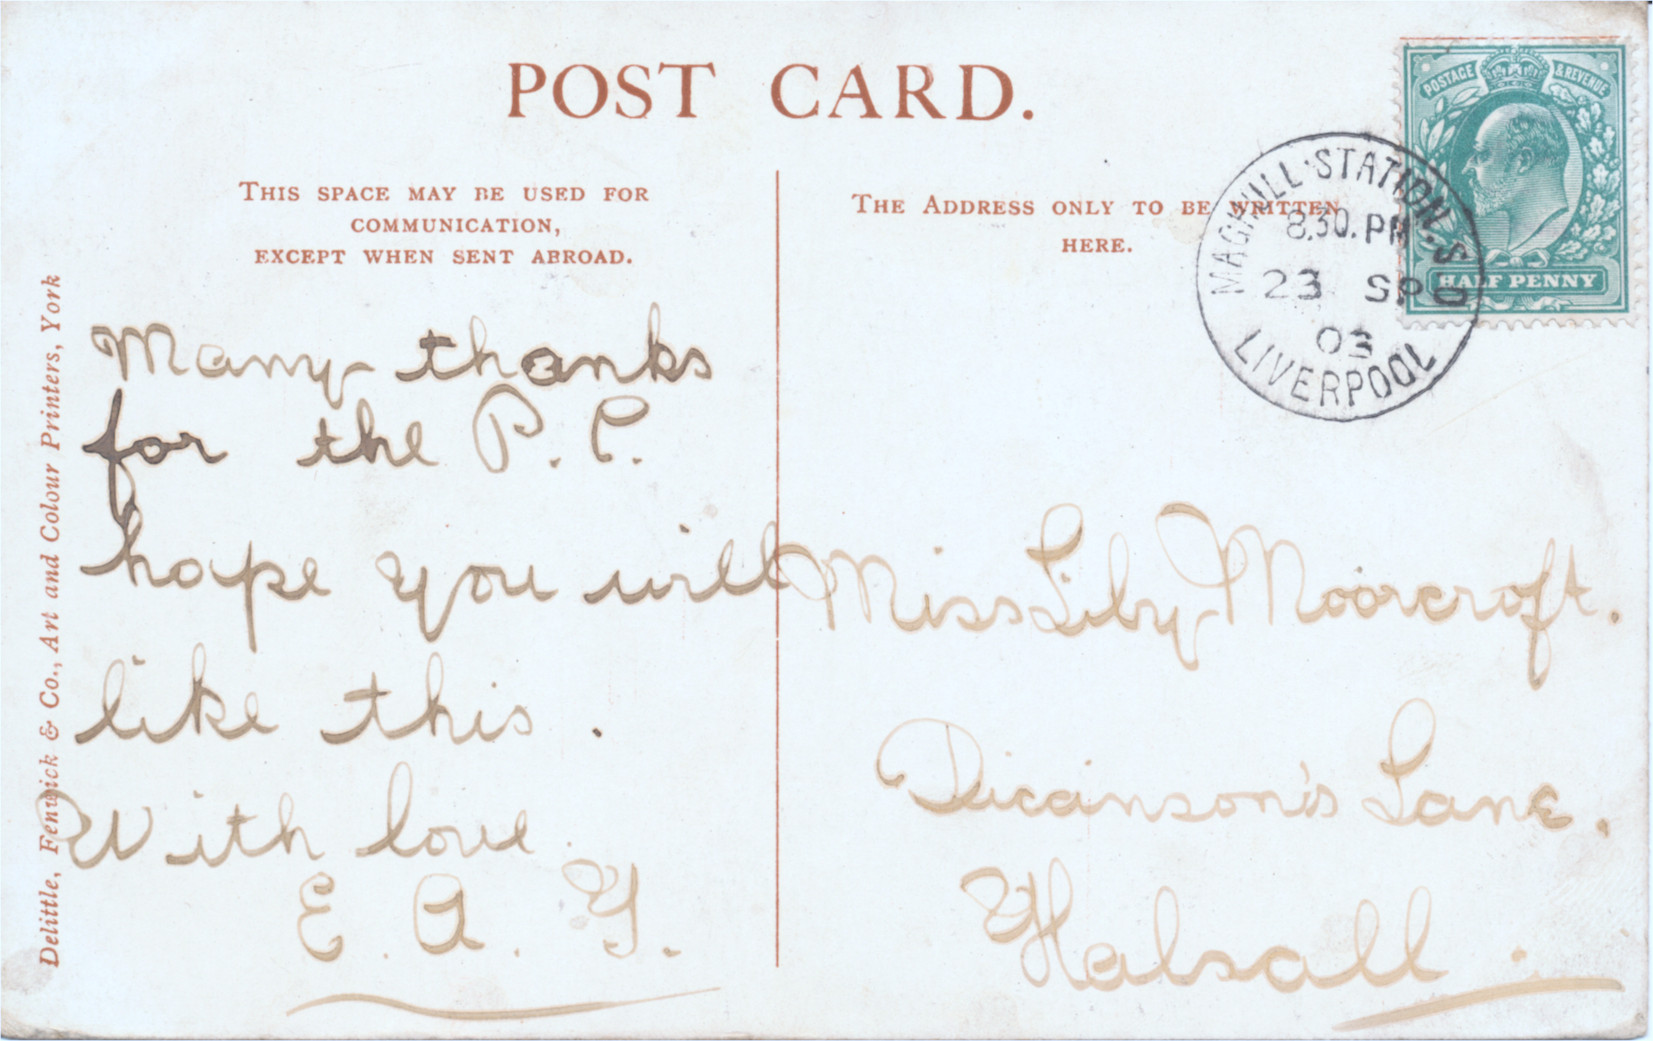 POST CARD.
THIS SPACE MAY BE USED FOR
COMMUNICATION,
EXCEPT WHEN SENT ABROAD.
THE ADDRESS ONLY TO BE WRITTEN
HERE.
POSTAGE & REVENUE
HALF PENNY
MAGHULL STATION. S.O
8.30. PM
23 SP
03
LIVERPOOL
Delittle, Fenwick & Co., Art and Colour Printers, York
Many thanks
for the P. C.
hope you will
like this.
With love.
E. A. Y.
Miss Lily Moorcroft.
Dicconson's Lane.
Halsall